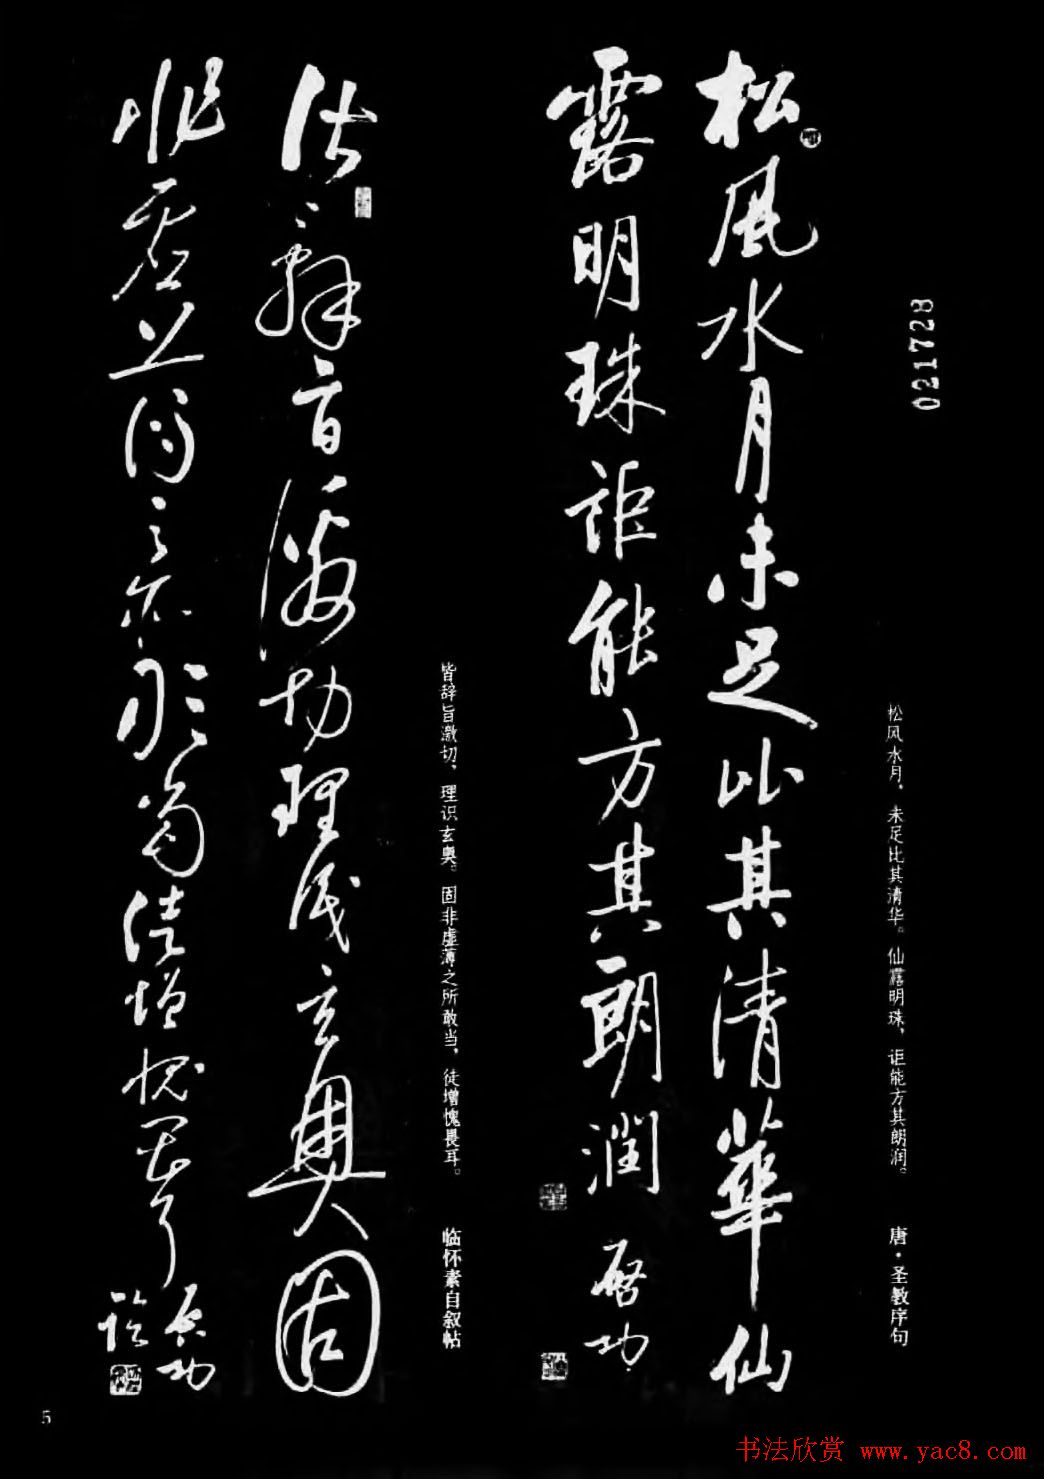 021728
松风水月，未足比其清华。仙露明珠，讵能方其朗润。
唐·圣教序句
松風水月未足比其清華仙
露明珠詎能方其朗潤
啓功
皆辞旨激切，理识玄奥。固非虚薄之所敢当，徒增愧畏耳。
临怀素自叙帖
皆辭旨激切理識玄奥固
非虛薄之所敢當徒增愧畏耳
啓功
臨
5
书法欣赏 www.yac8.com